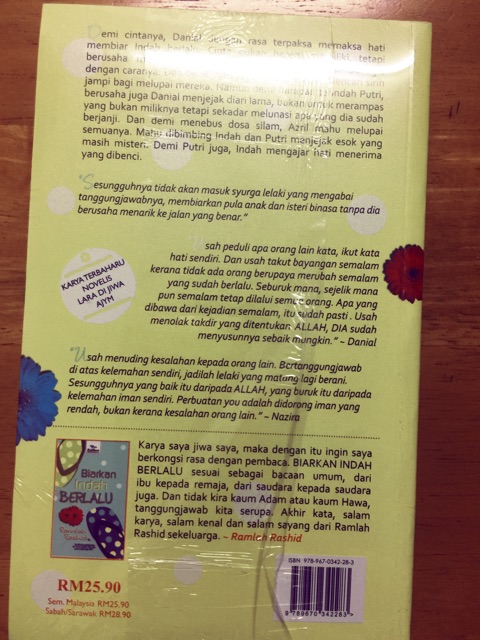 Demi cintanya, Danial dengan rasa terpaksa memaksa hati
membiar Indah berlalu. Cinta bukan
tetapi
berusaha
dengan caranya.
jampi bagi melupai mereka. Namun demi
Indah Putri,
berusaha juga Danial menjejak diari lama, bukan untuk merampas
yang bukan miliknya tetapi sekadar melunasi apa yang dia sudah
berjanji. Dan demi menebus dosa silam, Azril mahu melupai
semuanya. Mahu dibimbing Indah dan Putri menjejak esok yang
masih misteri. Demi Putri juga, Indah mengajar hati menerima
yang dibenci.
"Sesungguhnya tidak akan masuk syurga lelaki yang mengabai
tanggungjawabnya, membiarkan pula anak dan isteri binasa tanpa dia
berusaha menarik ke jalan yang benar."
KARYA TERBAHARU
NOVELIS
LARA DI JIWA
AJYM
"Usah peduli apa orang lain kata, ikut kata
hati sendiri. Dan usah takut bayangan semalam
kerana tidak ada orang berupaya merubah semalam
yang sudah berlalu. Seburuk mana, sejelik mana
pun semalam tetap dilalui semua orang. Apa yang
dibawa dari kejadian semalam, itu sudah pasti. Usah
menolak takdir yang ditentukan. ALLAH, DIA sudah
menyusunnya sebaik mungkin." ~ Danial
"Usah menuding kesalahan kepada orang lain. Bertanggungjawab
di atas kelemahan sendiri, jadilah lelaki yang matang lagi berani.
Sesungguhnya yang baik itu daripada ALLAH, yang buruk itu daripada
kelemahan iman sendiri. Perbuatan you adalah didorong iman yang
rendah, bukan kerana kesalahan orang lain." ~ Nazira
Biarkan
Indah
BERLALU
Ramlah Rashid
Karya saya jiwa saya, maka dengan itu ingin saya
berkongsi rasa dengan pembaca. BIARKAN INDAH
BERLALU sesuai sebagai bacaan umum, dari
ibu kepada remaja, dari saudara kepada saudara
juga. Dan tidak kira kaum Adam atau kaum Hawa,
tanggungjawab kita serupa. Akhir kata, salam
karya, salam kenal dan salam sayang dari Ramlah
Rashid sekeluarga. ~ Ramlah Rashid
RM25.90
Sem. Malaysia RM25.90
Sabah/Sarawak RM28.90
ISBN 978-967-0342-28-3
9 789670 342283